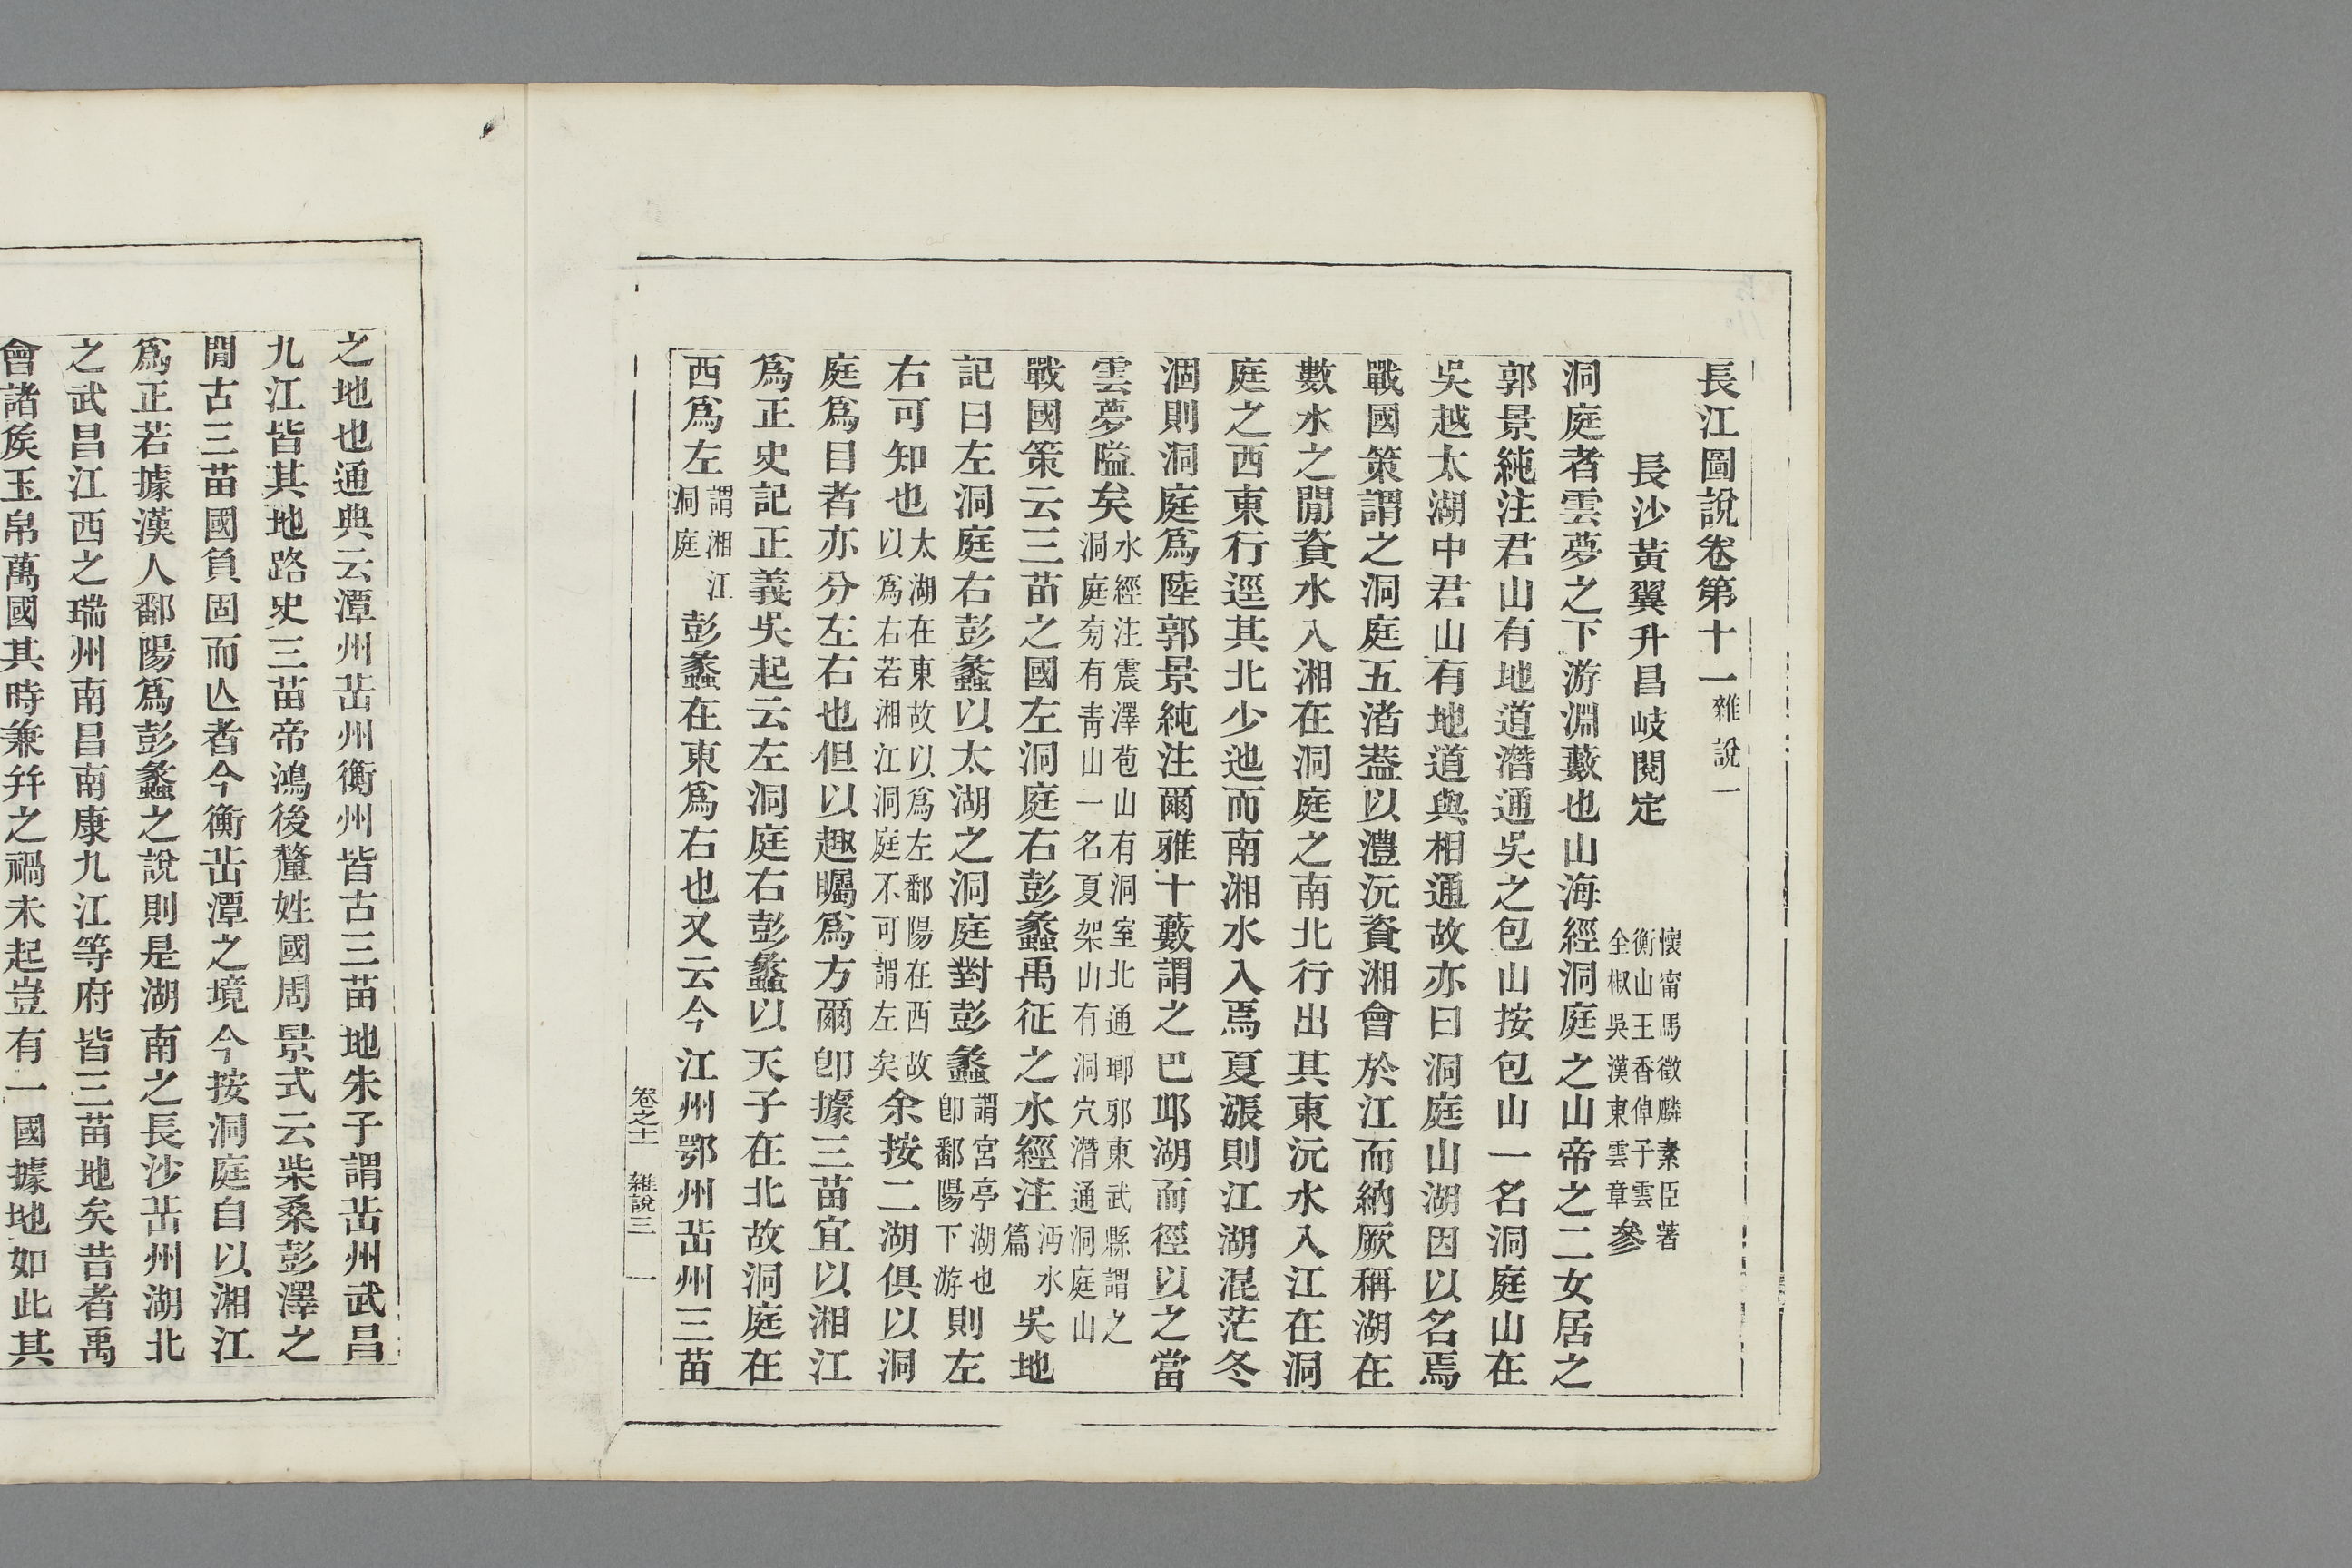 長江圖說卷第十一雜說一
長沙黃翼升昌岐閱定
懷甯馬徵麟素臣著
衡山王香倬子雲
全椒吳漢東雲章參
洞庭者雲夢之下游淵藪也山海經洞庭之山帝之二女居之
郭景純注君山有地道潛通吳之包山按包山一名洞庭山在
吳越太湖中君山有地道與相通故亦曰洞庭山湖因以名焉
戰國策謂之洞庭五渚葢以澧沅資湘會於江而納厥稱湖在
數水之閒資水入湘在洞庭之南北行出其東沅水入江在洞
庭之西東行逕其北少迆而南湘水入焉夏漲則江湖混茫冬
涸則洞庭爲陸郭景純注爾雅十藪謂之巴邱湖而徑以之當
雲夢隘矣水經注震澤苞山有洞室北通瑯邪東武縣謂之洞庭穴有靑山一名夏架山有洞穴潛通洞庭山
戰國策云三苗之國左洞庭右彭蠡禹征之水經注沔水篇吳地
記曰左洞庭右彭蠡以太湖之洞庭對彭蠡謂宮亭湖也卽鄱陽下游則左
右可知也太湖在東故以爲左鄱陽在西故以爲右若湘江洞庭不可謂左矣余按二湖俱以洞
庭爲目者亦分左右也但以趣矚爲方爾卽據三苗宜以湘江
爲正史記正義吳起云左洞庭右彭蠡以天子在北故洞庭在
西爲左謂湘江洞庭彭蠡在東爲右也又云今江州鄂州岳州三苗
卷之十一 雜說三 一
之地也通典云潭州岳州衡州皆古三苗地朱子謂岳州武昌
九江皆其地路史三苗帝鴻後釐姓國周景式云柴桑彭澤之
閒古三苗國負固而亾者今衡岳潭之境今按洞庭自以湘江
爲正若據漢人鄱陽爲彭蠡之說則是湖南之長沙岳州湖北
之武昌江西之瑞州南昌南康九江等府皆三苗地矣昔者禹
會諸矦玉帛萬國其時兼幷之禍未起豈有一國據地如此其